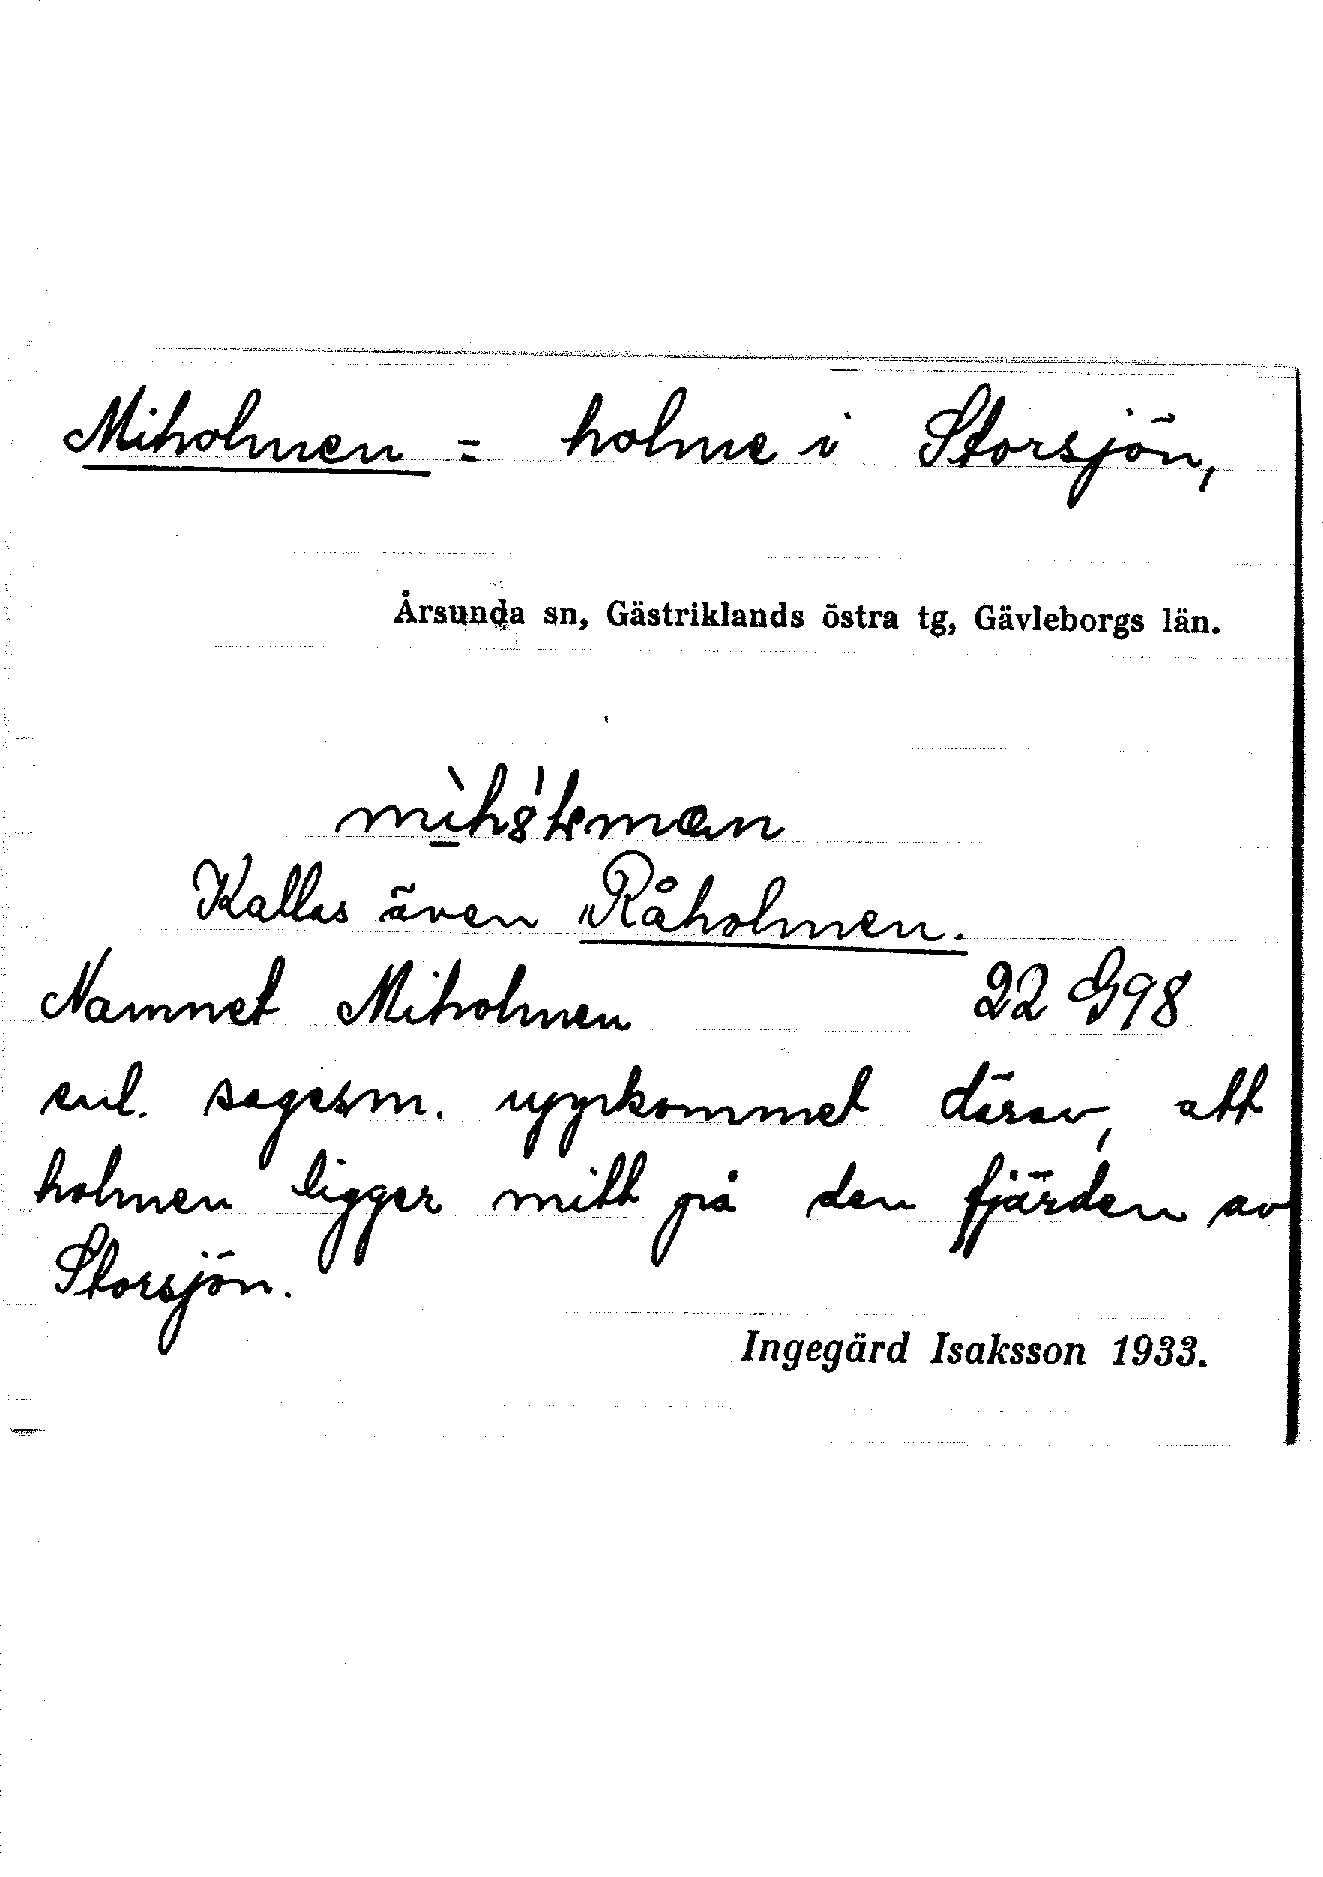 Miholmen = holme i Storsjön,
Årsunda sn, Gästriklands östra tg, Gävleborgs län.
Kallas även Råholmen.
Namnet Miholmen 22 G98
enl. sagesm. uppkommet därav, att
holmen ligger mitt på den fjärden av
Storsjön.
Ingegärd Isaksson 1933.